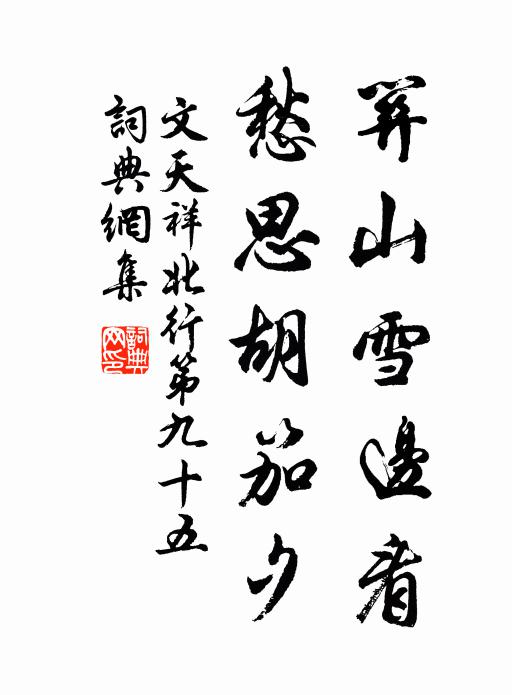 關山雪邊看
愁思胡笳夕
文天祥北行第九十五
詞典網集
詞典網印